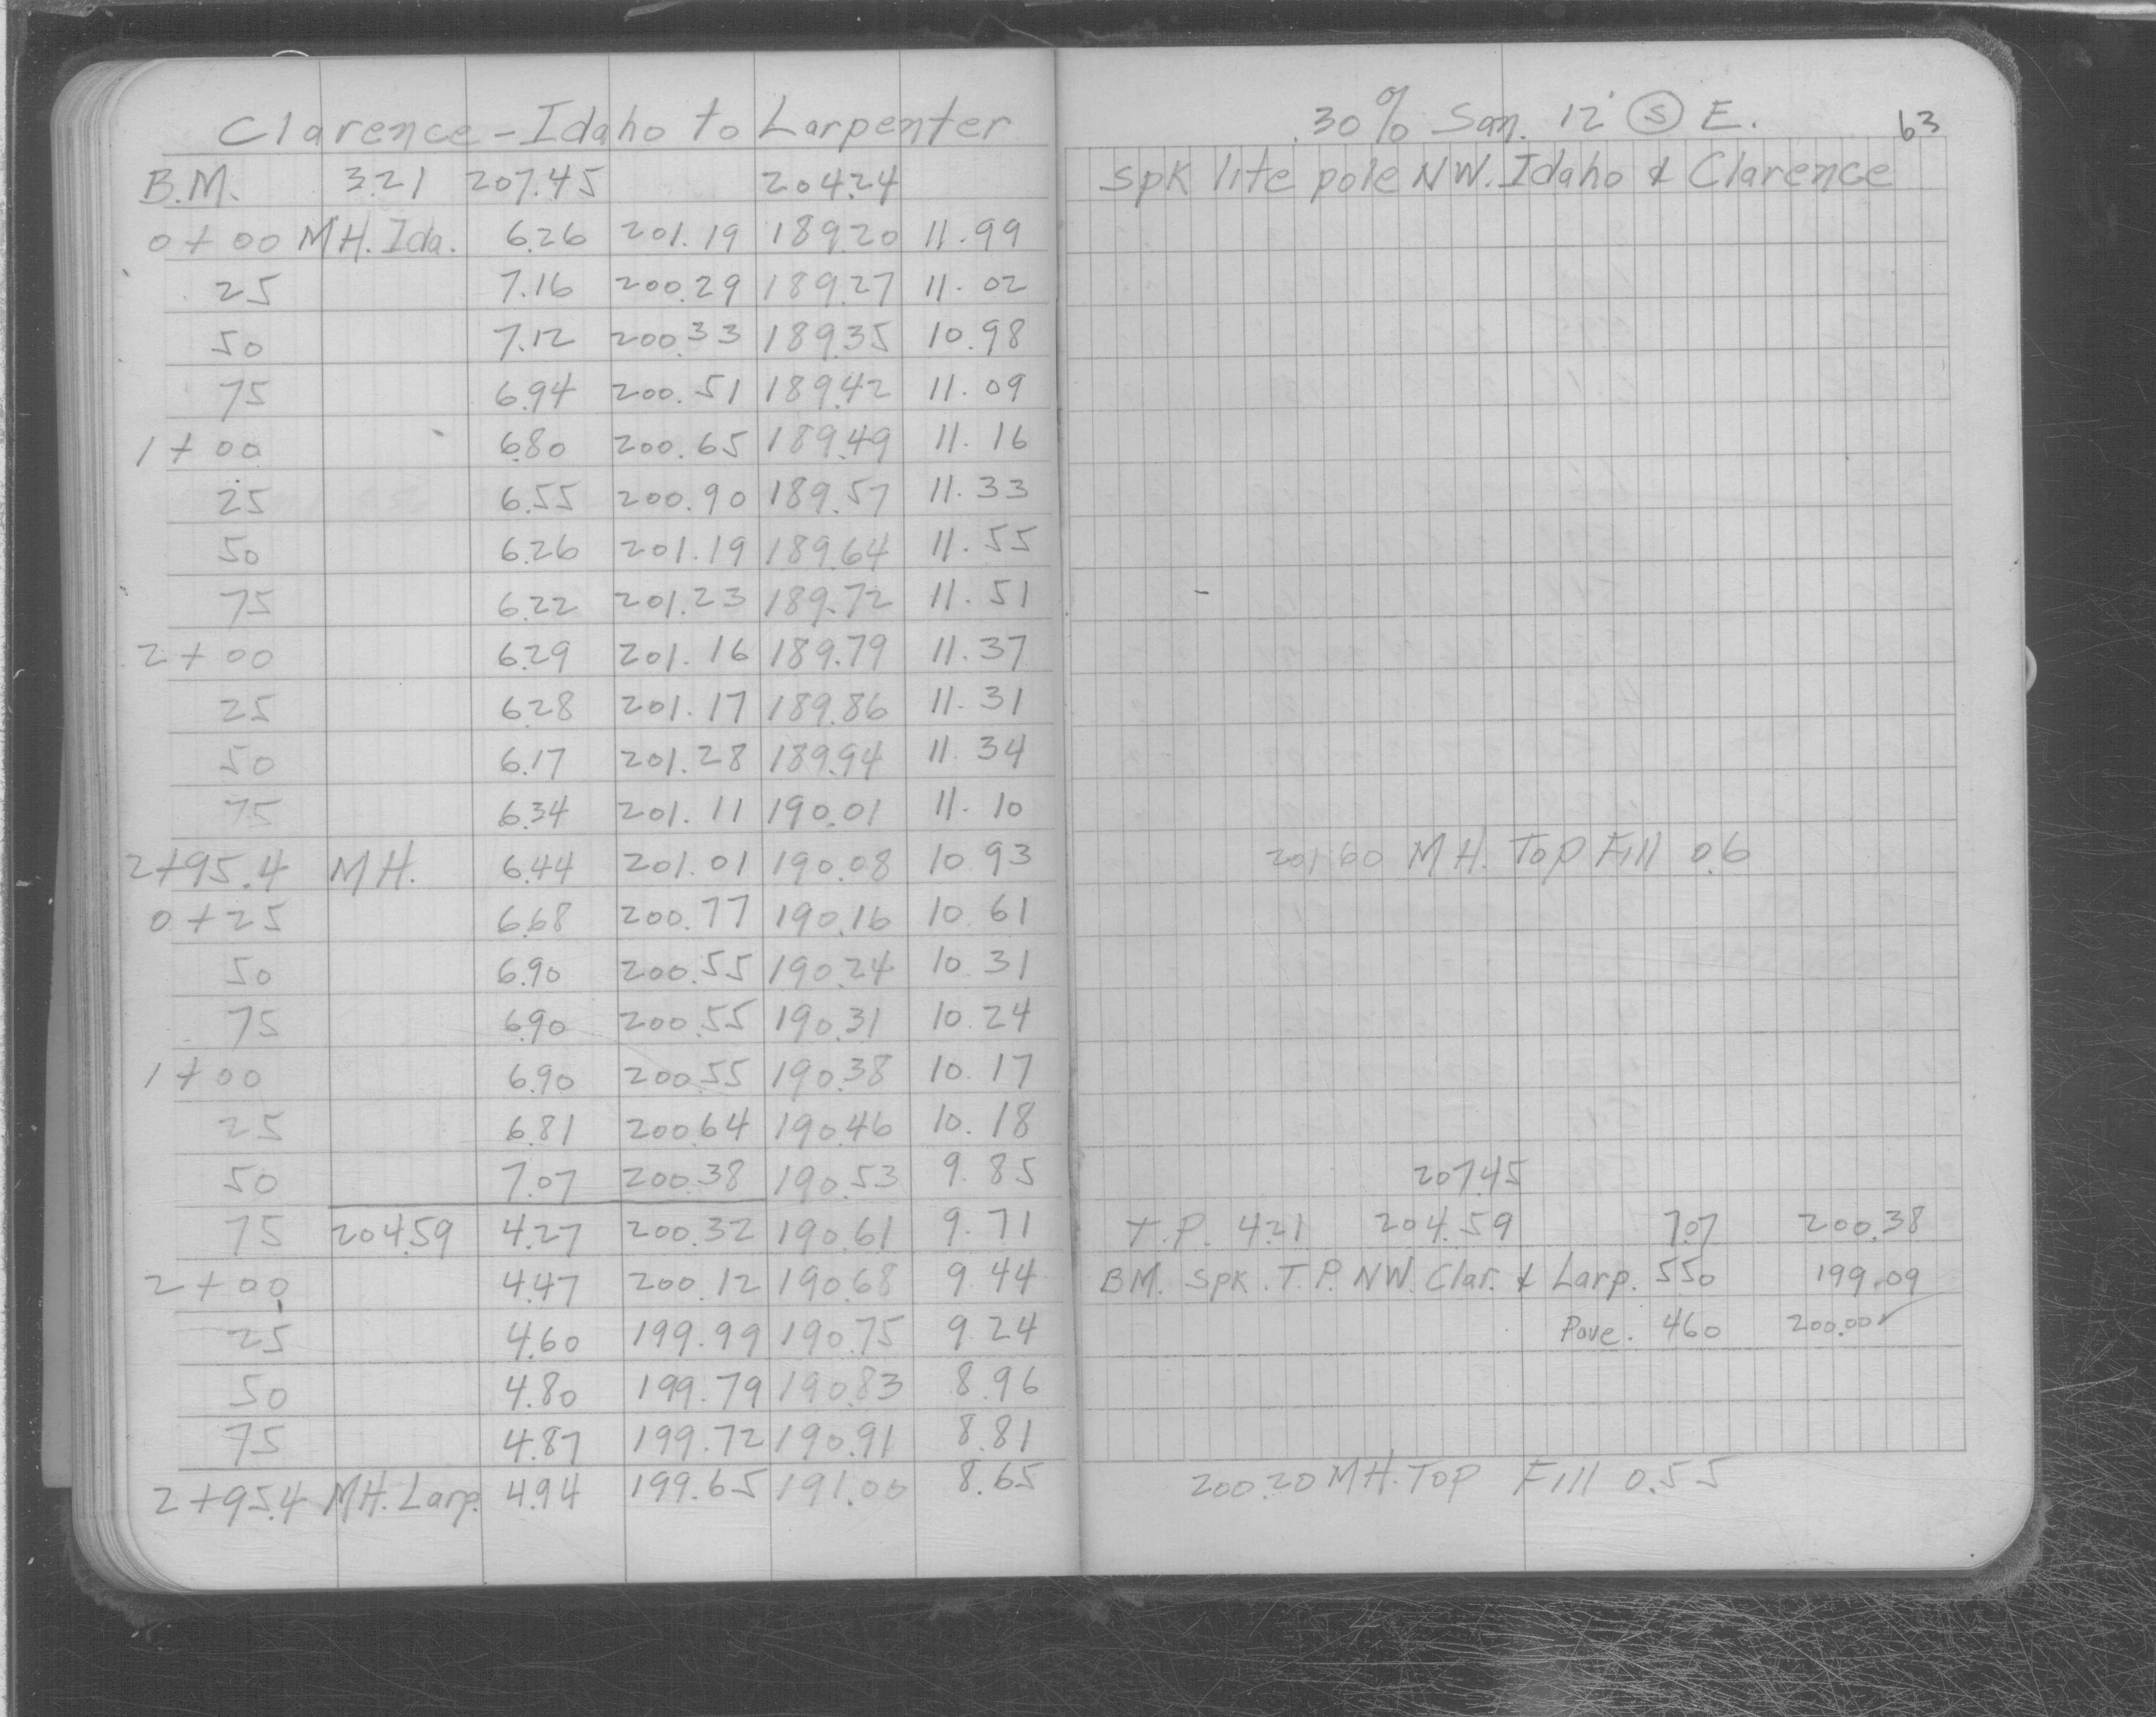 Clarence - Idaho to Larpenter
B.M. 3.21 207.45 204.24
0+00 MH. Ida. 6.26 201.19 189.20 11.99
25 7.16 200.29 189.27 11.02
50 7.12 200.33 189.35 10.98
75 6.94 200.51 189.42 11.09
1+00 6.80 200.65 189.49 11.16
25 6.55 200.90 189.57 11.33
50 6.26 201.19 189.64 11.55
75 6.22 201.23 189.72 11.51
2+00 6.29 201.16 189.79 11.37
25 6.28 201.17 189.86 11.31
50 6.17 201.28 189.94 11.34
75 6.34 201.11 190.01 11.10
2+95.4 MH. 6.44 201.01 190.08 10.93
0+25 6.68 200.77 190.16 10.61
50 6.90 200.55 190.24 10.31
75 6.90 200.55 190.31 10.24
1+00 6.90 200.55 190.38 10.17
25 6.81 200.64 190.46 10.18
50 7.07 200.38 190.53 9.85
75 204.59 4.27 200.32 190.61 9.71
2+00 4.47 200.12 190.68 9.44
25 4.60 199.99 190.75 9.24
50 4.80 199.79 190.83 8.96
75 4.87 199.72 190.91 8.81
2+95.4 MH. Larp. 4.94 199.65 191.00 8.65
.30% San. 12' S E. 63
Spk lite pole NW. Idaho & Clarence
201.60 MH. Top Fill 0.6
207.45
T.P. 4.21 204.59 7.07 200.38
BM. Spk. T.P. NW. Clar. & Larp. 5.50 199.09
Pave. 4.60 200.00 ✓
200.20 MH. Top Fill 0.55